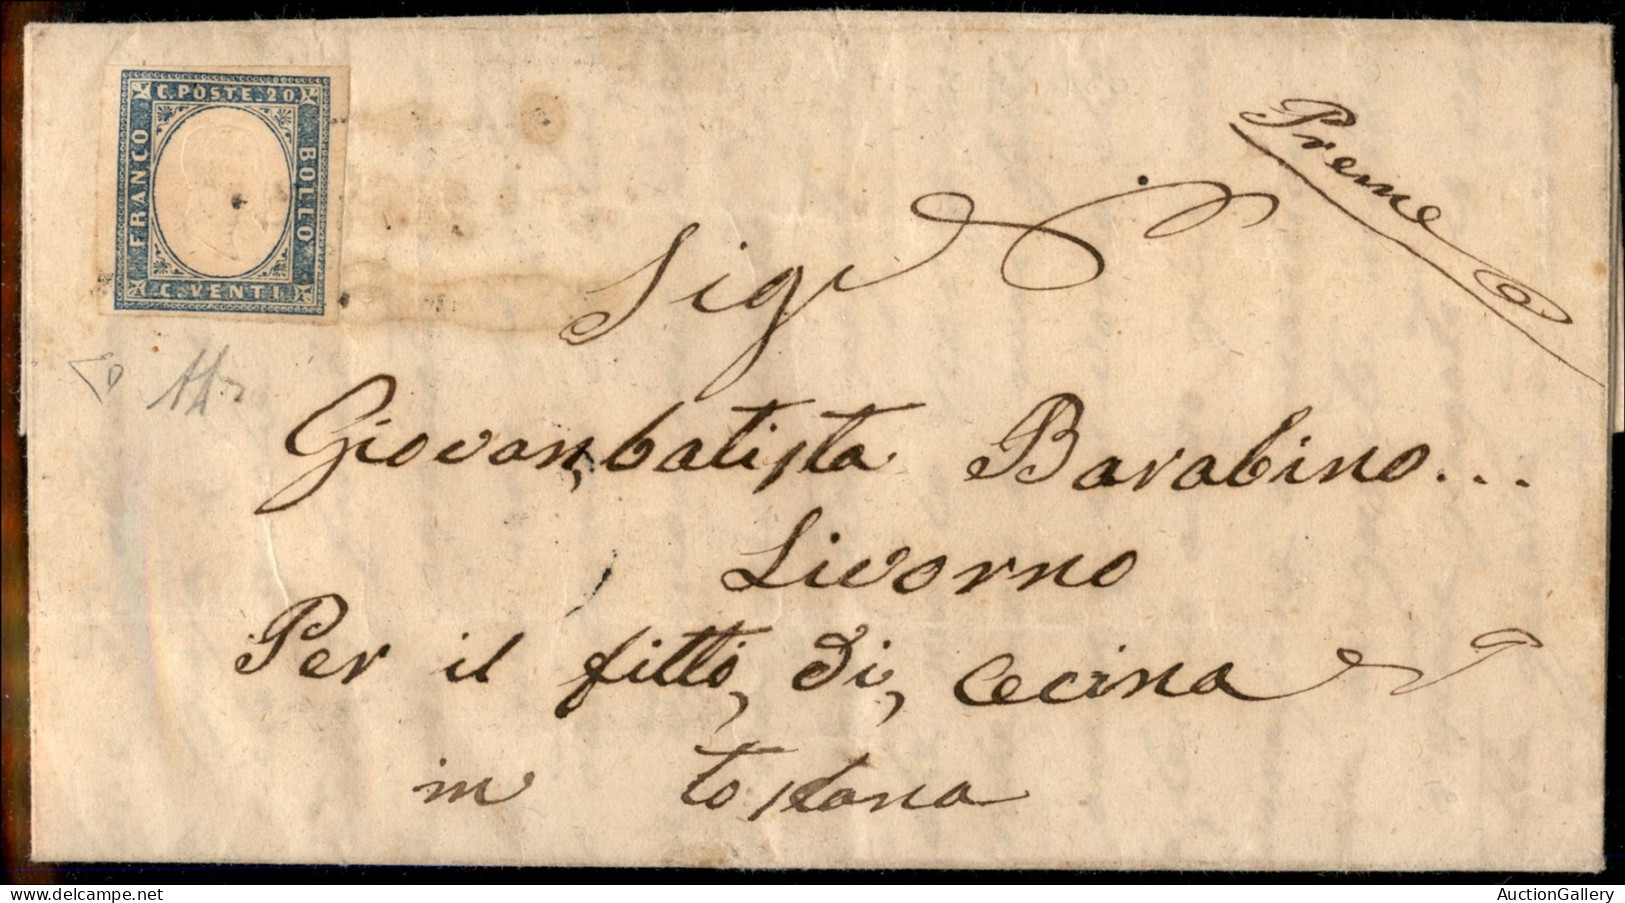 C. POSTE. 20.
FRANCO
BOLLO
C. VENTI
Preme
Sigr
Giovan,batista Barabino...
Livorno
Per il fitto, di, Cecina
in toscana
AuctionGallery